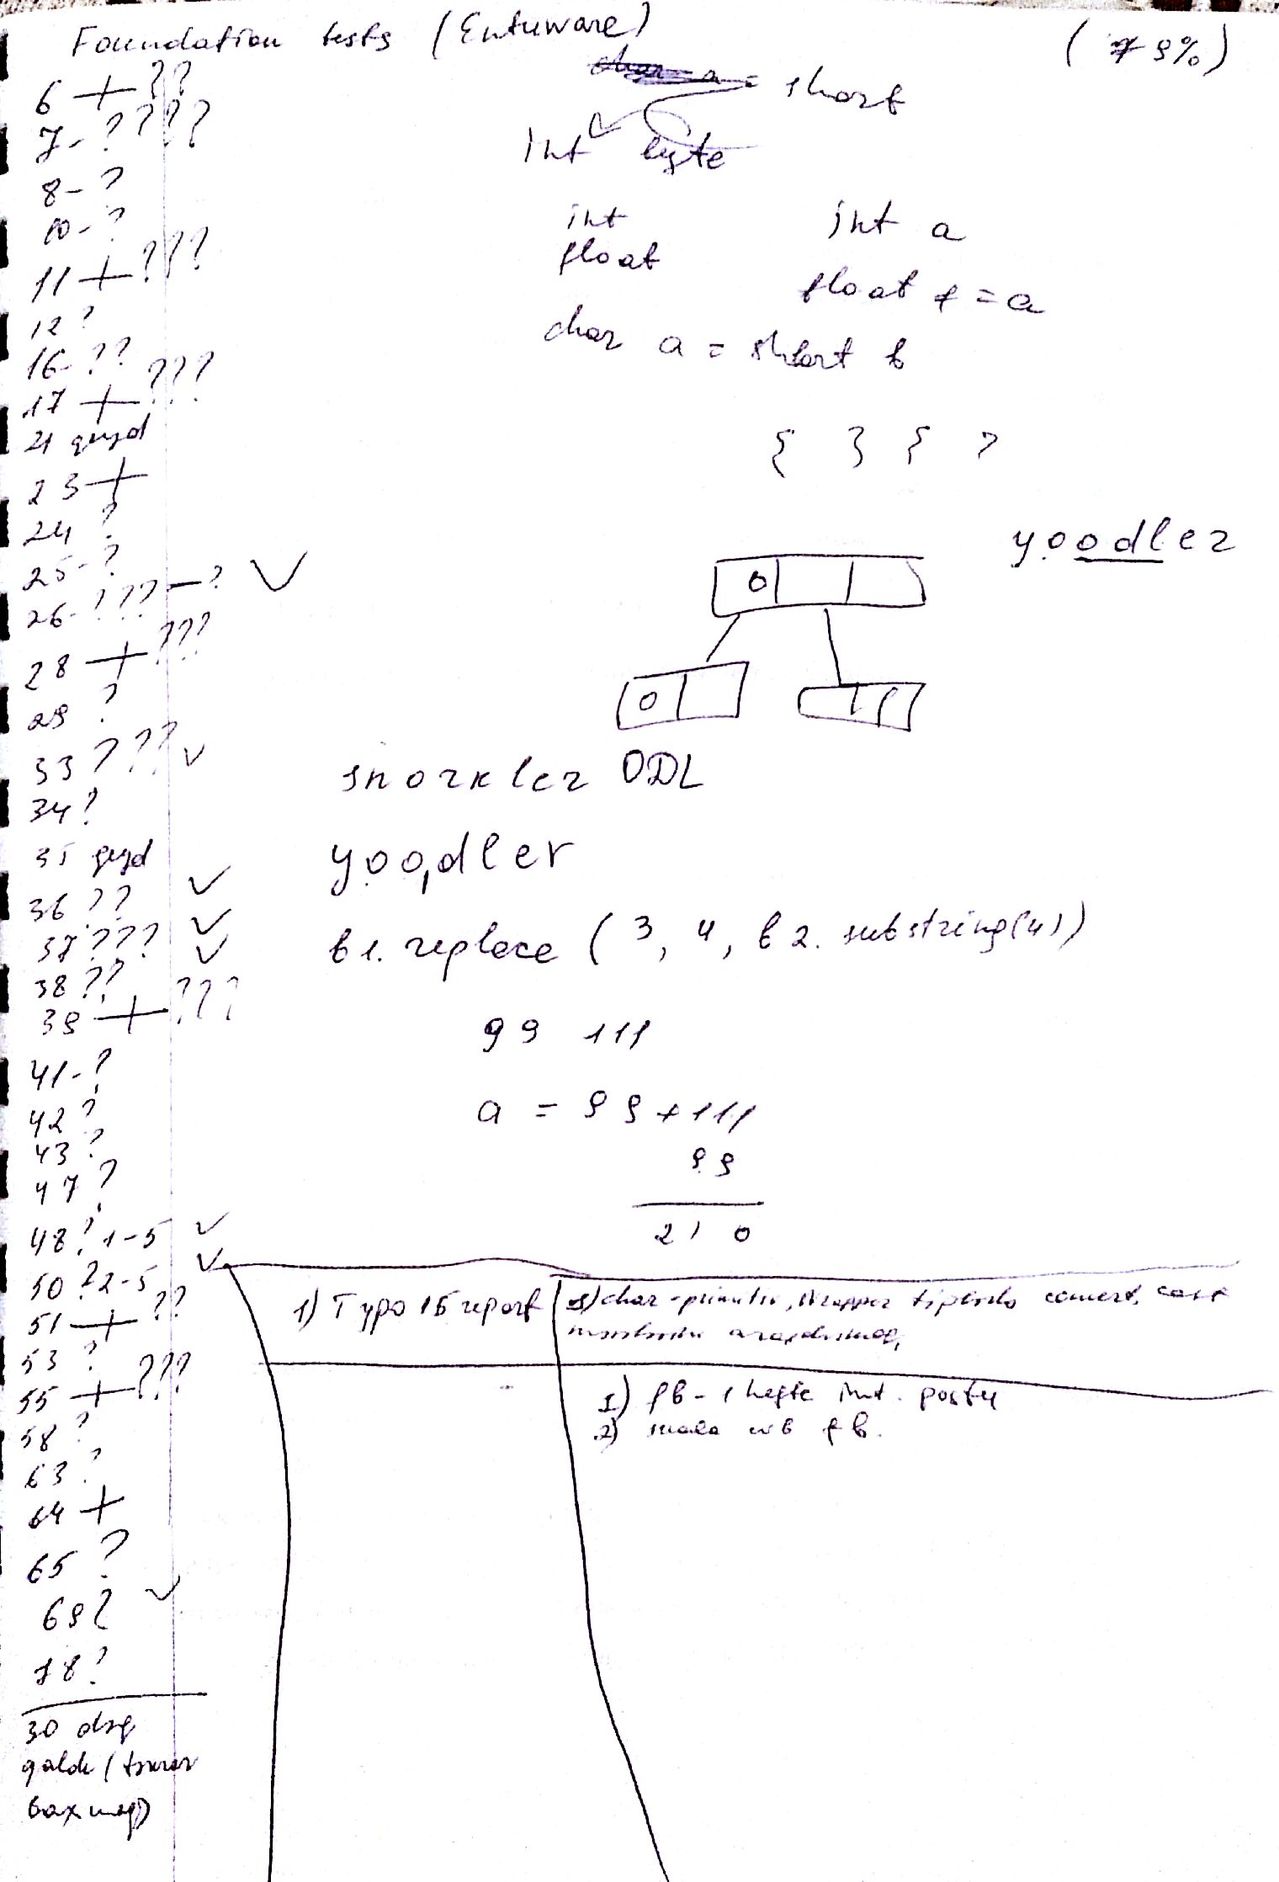 Foundation tests (Enthuware)
(79%)
6 + ??
7- ????
8- ?
10- ?
11 + ???
12 ?
16- ??
17 + ???
21 qeyd
23 +
24 ?
25- ?
26- ??? - ?
28 + ???
29 ?
33 ???
34 ?
35 qeyd
36 ??
37 ???
38 ??
39 + ???
41- ?
42 ?
43 ?
47 ?
48 ? 1-5
50 ? 2-5
51 + ??
53 ?
55 + ???
58 ?
63 ?
64 +
65 ?
69 ?
78 ?
30 dəq
qaldı (
baxmağ)
= short
int byte
int
float
int a
float f = a
char a = short b
{ } { }
yoodler
0
0
snorkler ODL
yoodler
b1.replace (3, 4, b2.substring(4))
99 111
a = 99 + 111
99
210
1) Typo 15 report
1) char - primitiv, Wrapper convert, cast
1) fb - 1 həftə int. postu
2) fb.